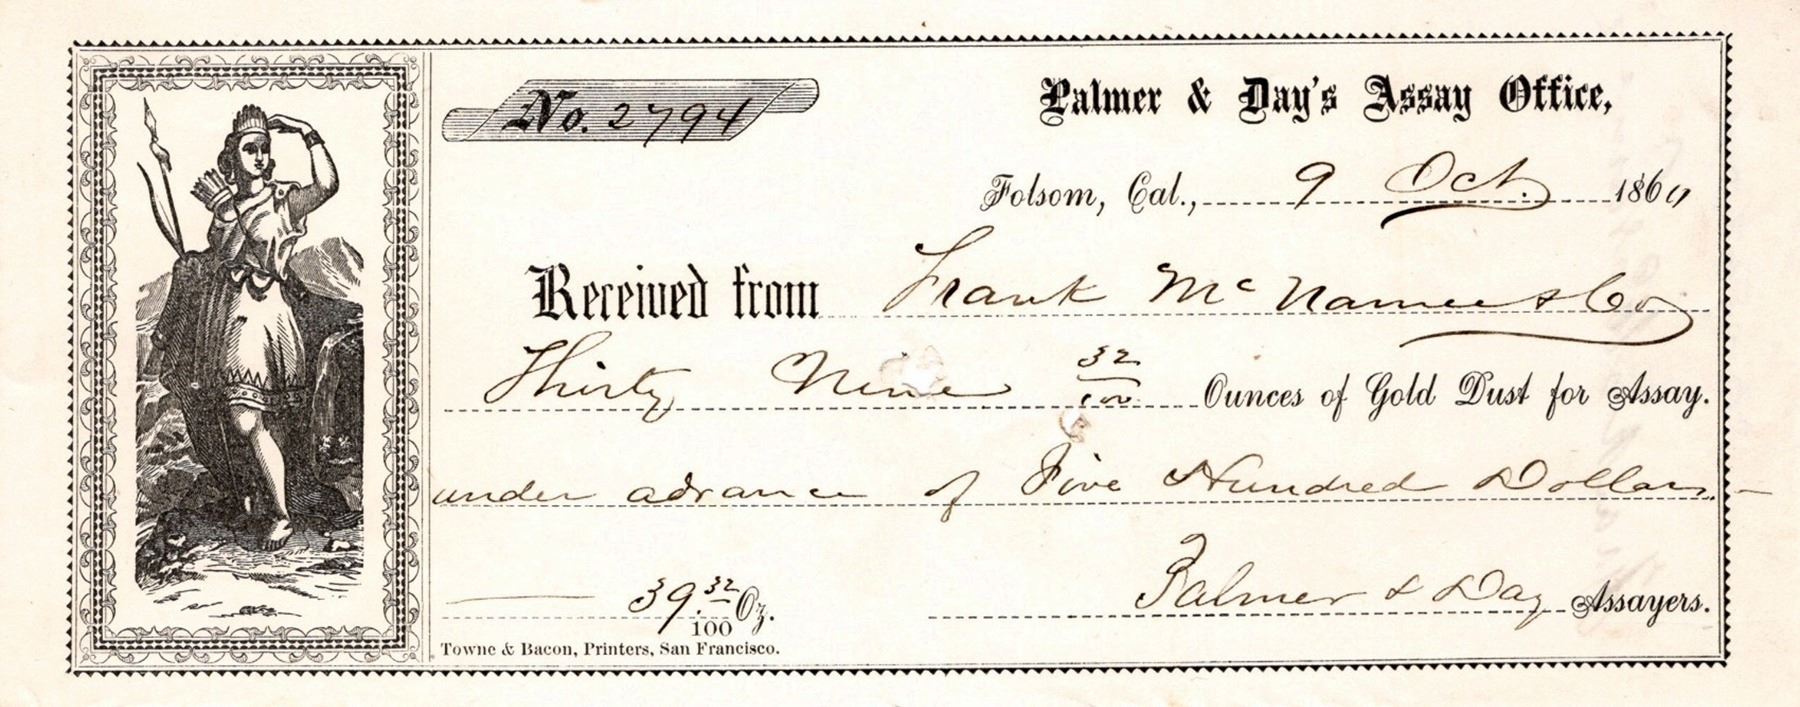 No. 2794
Palmer & Day's Assay Office,
Folsom, Cal., 9 Oct. 1860
Received from Frank McNamee & Co
Thirty Nine 32/100 Ounces of Gold Dust for Assay.
under advance of Five Hundred Dollars
39.32/100 Oz.
Palmer & Day Assayers.
Towne & Bacon, Printers, San Francisco.